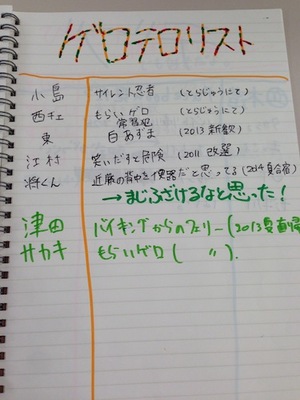 ゲロテロリスト
小島 サイレント忍者 (とらじゅうにて)
西チェ もらいゲロ 常習犯 (とらじゅうにて)
東 白あずま (2013 新歓)
江村 笑いだすと危険 (2011 改選)
将くん 近藤の背中を便器だと思ってる (2014 夏合宿)
→まじふざけるなと思った!
津田 バイキングからのフェリー (2013夏直帰
サカキ もらいゲロ ( 〃 ).